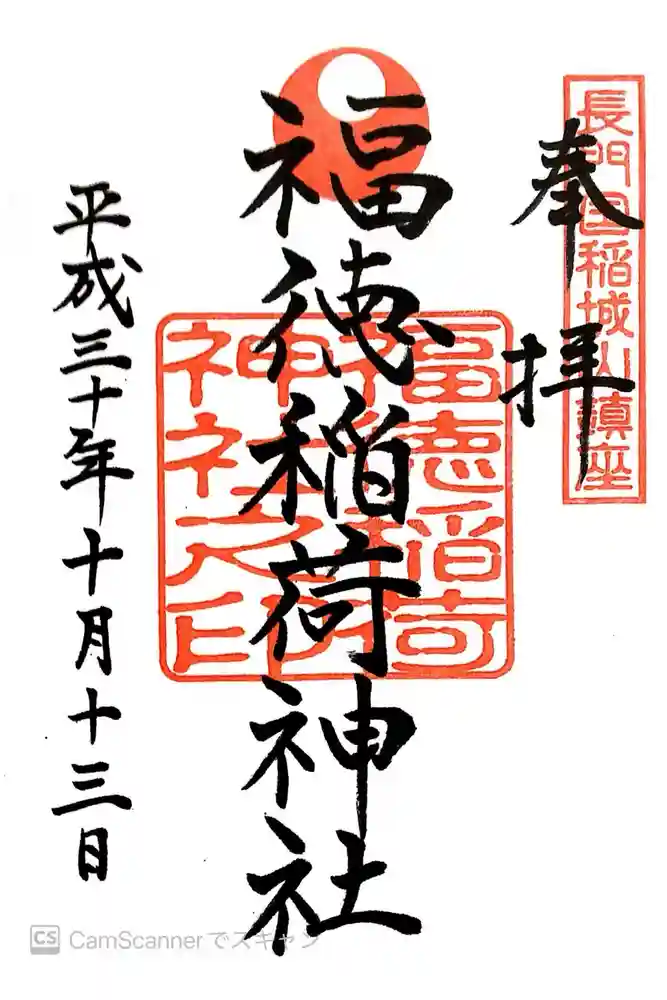 長門国稲城山鎮座
奉拝
福徳稲荷神社
福徳稲荷
神社之印
平成三十年十月十三日
CS CamScannerでスキャン